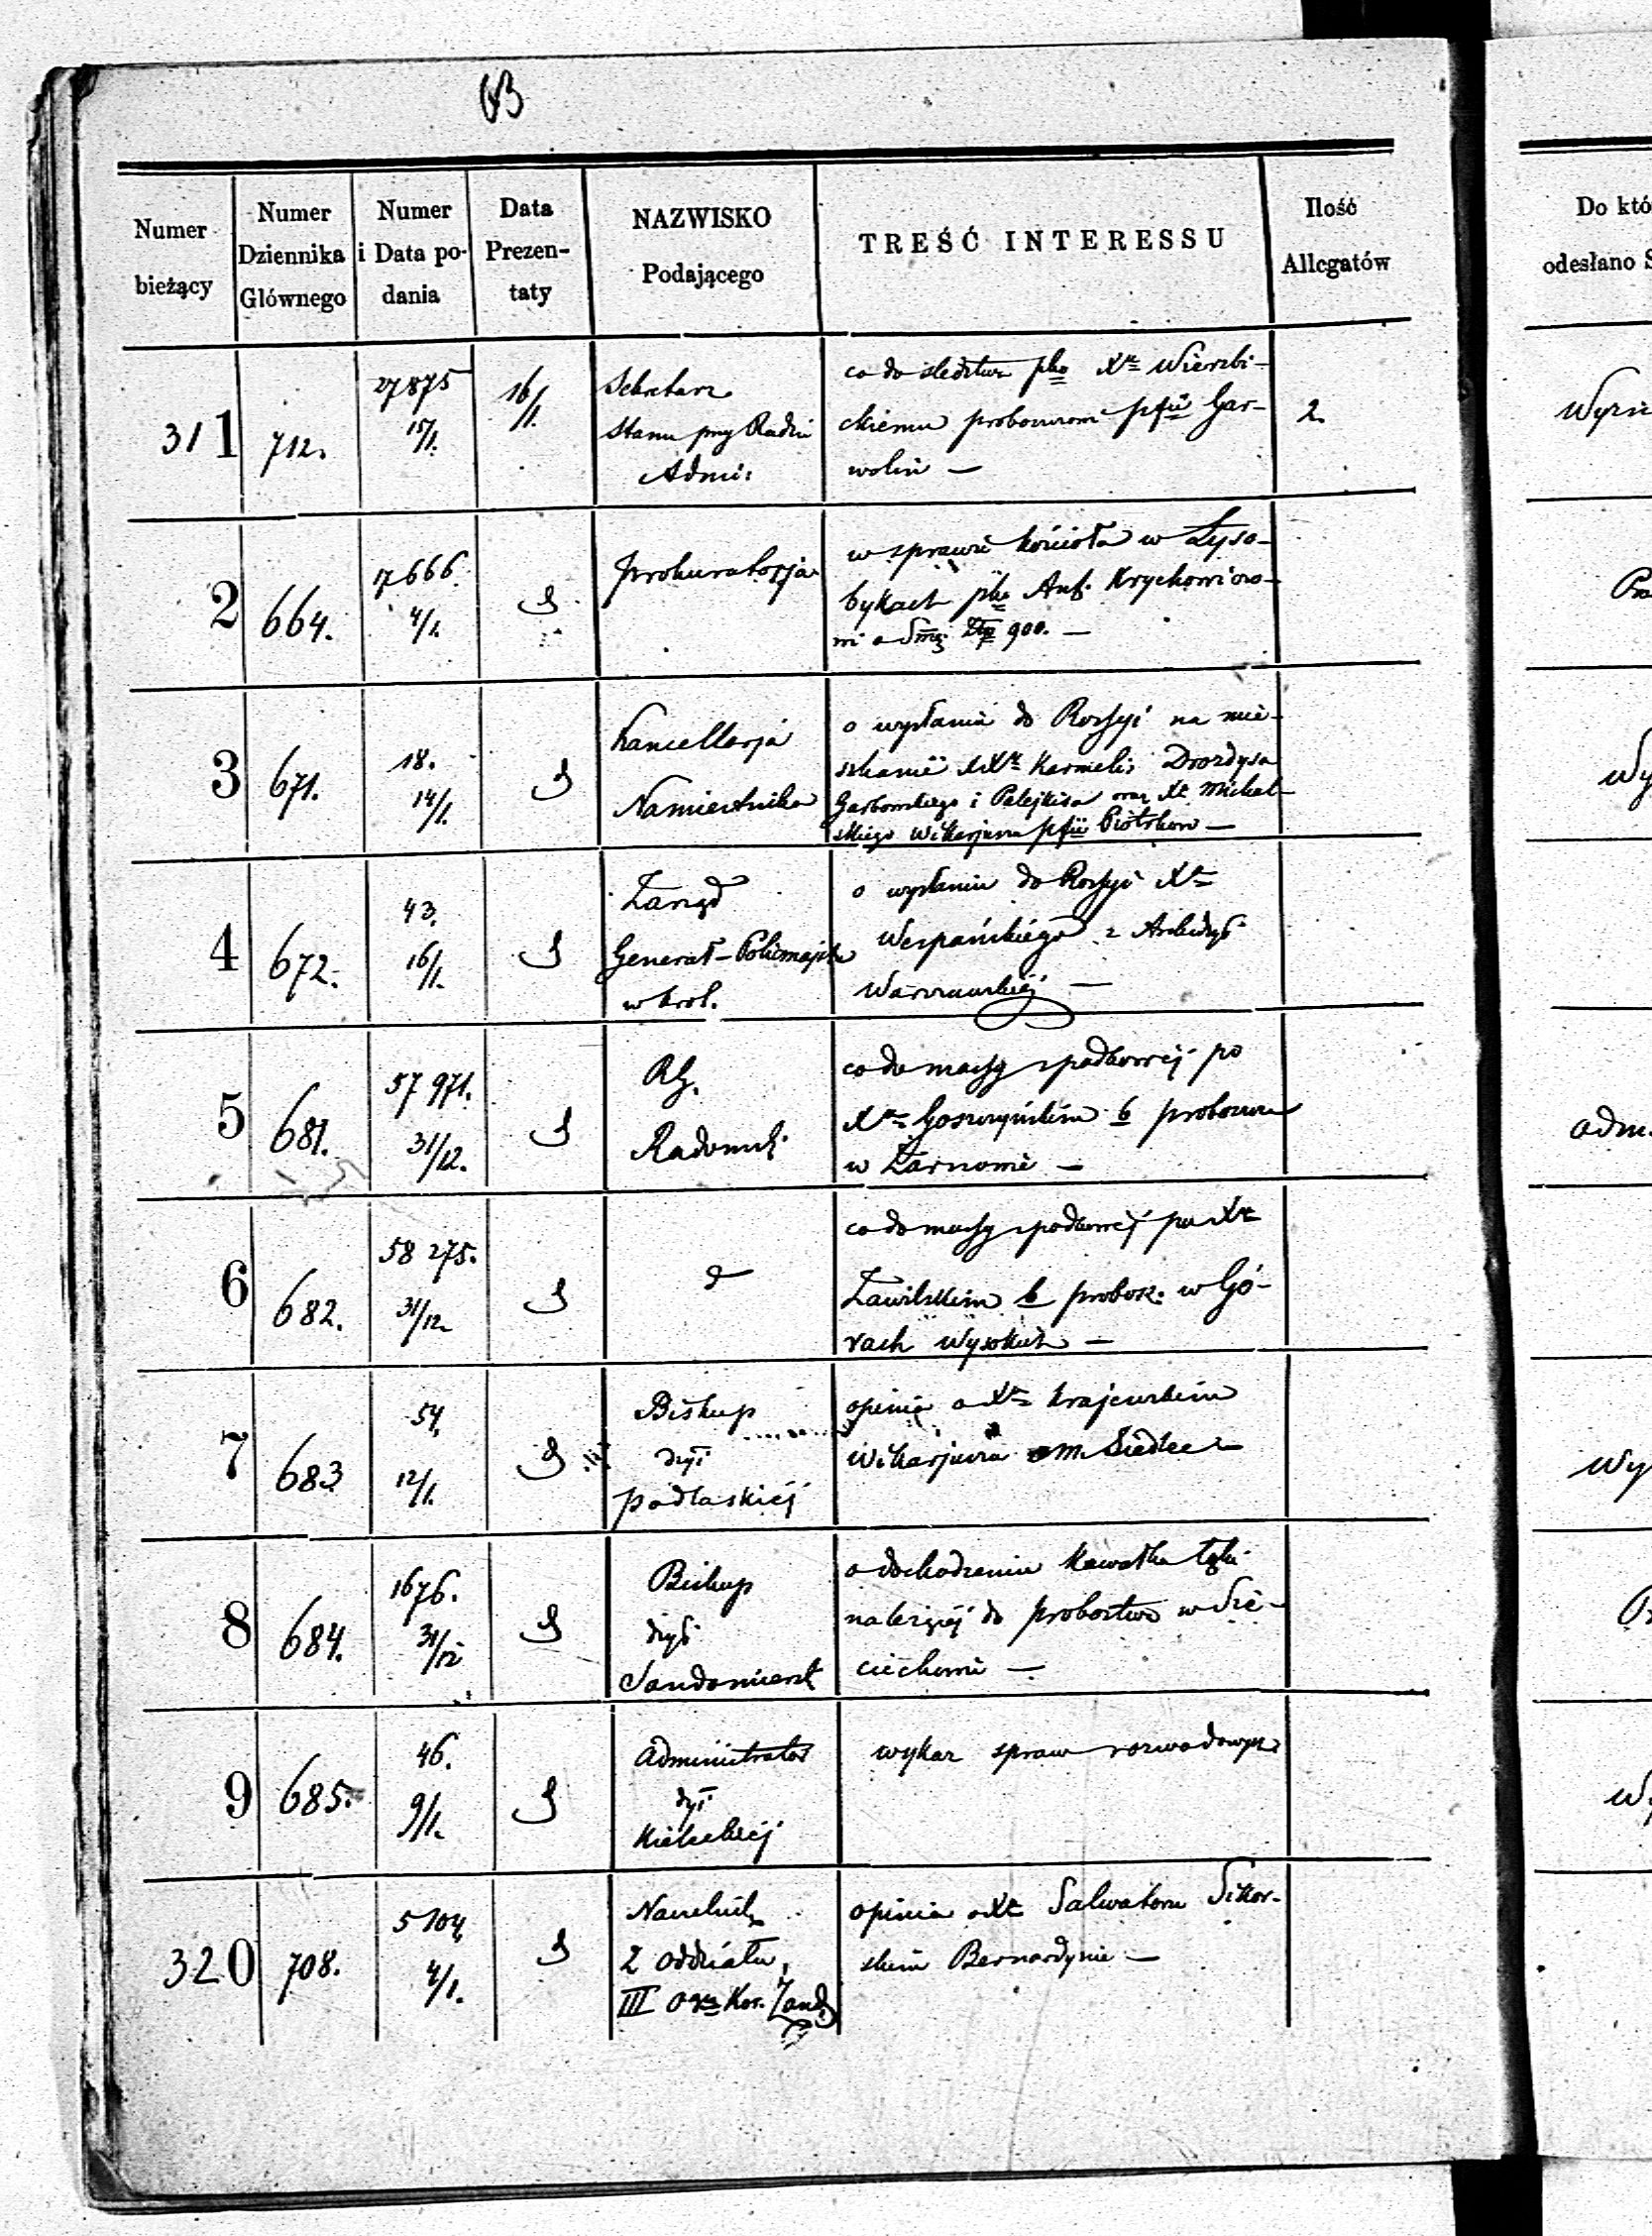 63
Numer bieżący
Numer Dziennika Głównego
Numer i Data podania
Data Prezentaty
NAZWISKO Podającego
TREŚĆ INTERESSU
Ilość Allegatów
Do któ
odesłano S
311
712.
27875
15/1.
16/1.
Sekretarz
Stanu przy Radzie
Admi:
co do śledztwa pko Xe Wierzbi-
ckiemu proboszczowi pfii Gar-
wolin —
2.
2
664.
17666.
4/1.
Prokuratorja
w sprawie kościoła w Łyso-
bykach pko Ant. Krychowieco-
wi o Smę Złp 900. —
3
671.
18.
14/1.
Kancellarja
Namiestnika
o wysłanie do Rossyi na mie-
szkanie XXy Karmeli: Drozdysa
Garbowskiego i Palejkisa oraz Xa Michal-
skiego Wikarjusza pfii Piotrkow —
4
672.
43.
16/1.
Zarząd
Generał-Policmajstra
w Król.
o wysłaniu do Rossyi Xa
Wespańskiego z Archidyec
Warszawskiéj —
5
681.
57 971.
31/12.
RG.
Radomsk.
co do massy spadkowéj po
Xu Goszczyńskim b proboszczu
w Żarnowie —
6
682.
58 275.
31/12
co do massy spadkowéj po Xu
Zawilskim b probosz. w Gó-
rach Wysokich —
7
683
54.
12/1.
Biskup
dyi
podlaskiéj
opinia o Xu Krajewskim
Wikarjuszu m. Siedlec —
8
684.
1676.
31/12
Biskup
dyec
Sandomiersk
o dochodzeniu kawałka łąki
należącéj do probostwa w Sie-
ciechowie —
9
685.
46.
9/1.
Administrator
dyi
Kieleckiéj
wykaz spraw rozwodowych
320
708.
5104
4/1.
Naczelnik
2 oddziału,
III Ogu Kor. Żand.
opinia o Xu Salwatorze Sikor-
skim Bernardynie —